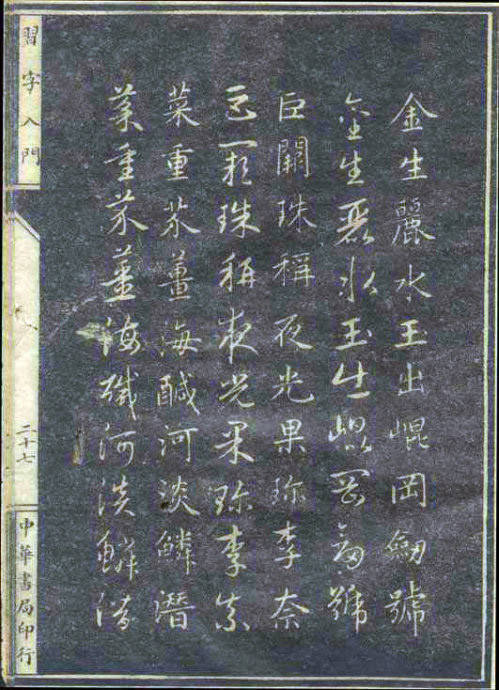 金生麗水玉出崐岡劒號
金生麗水玉出崐岡劒號
巨闕珠稱夜光果珎李奈
巨闕珠稱夜光果珎李奈
菜重芥薑海醎河淡鱗潛
菜重芥薑海醎河淡鱗潛
習字入門
二十七
中華書局印行